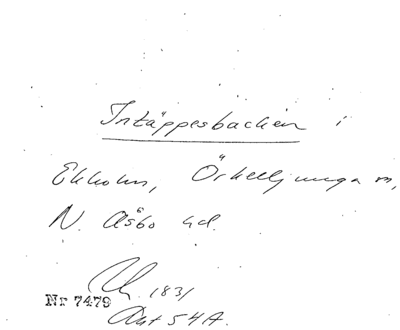 Intäppesbacken i
Ekholm, Örkelljunga sn,
N. Åsbo hd.
1831
Nr 7479
Akt 54A.